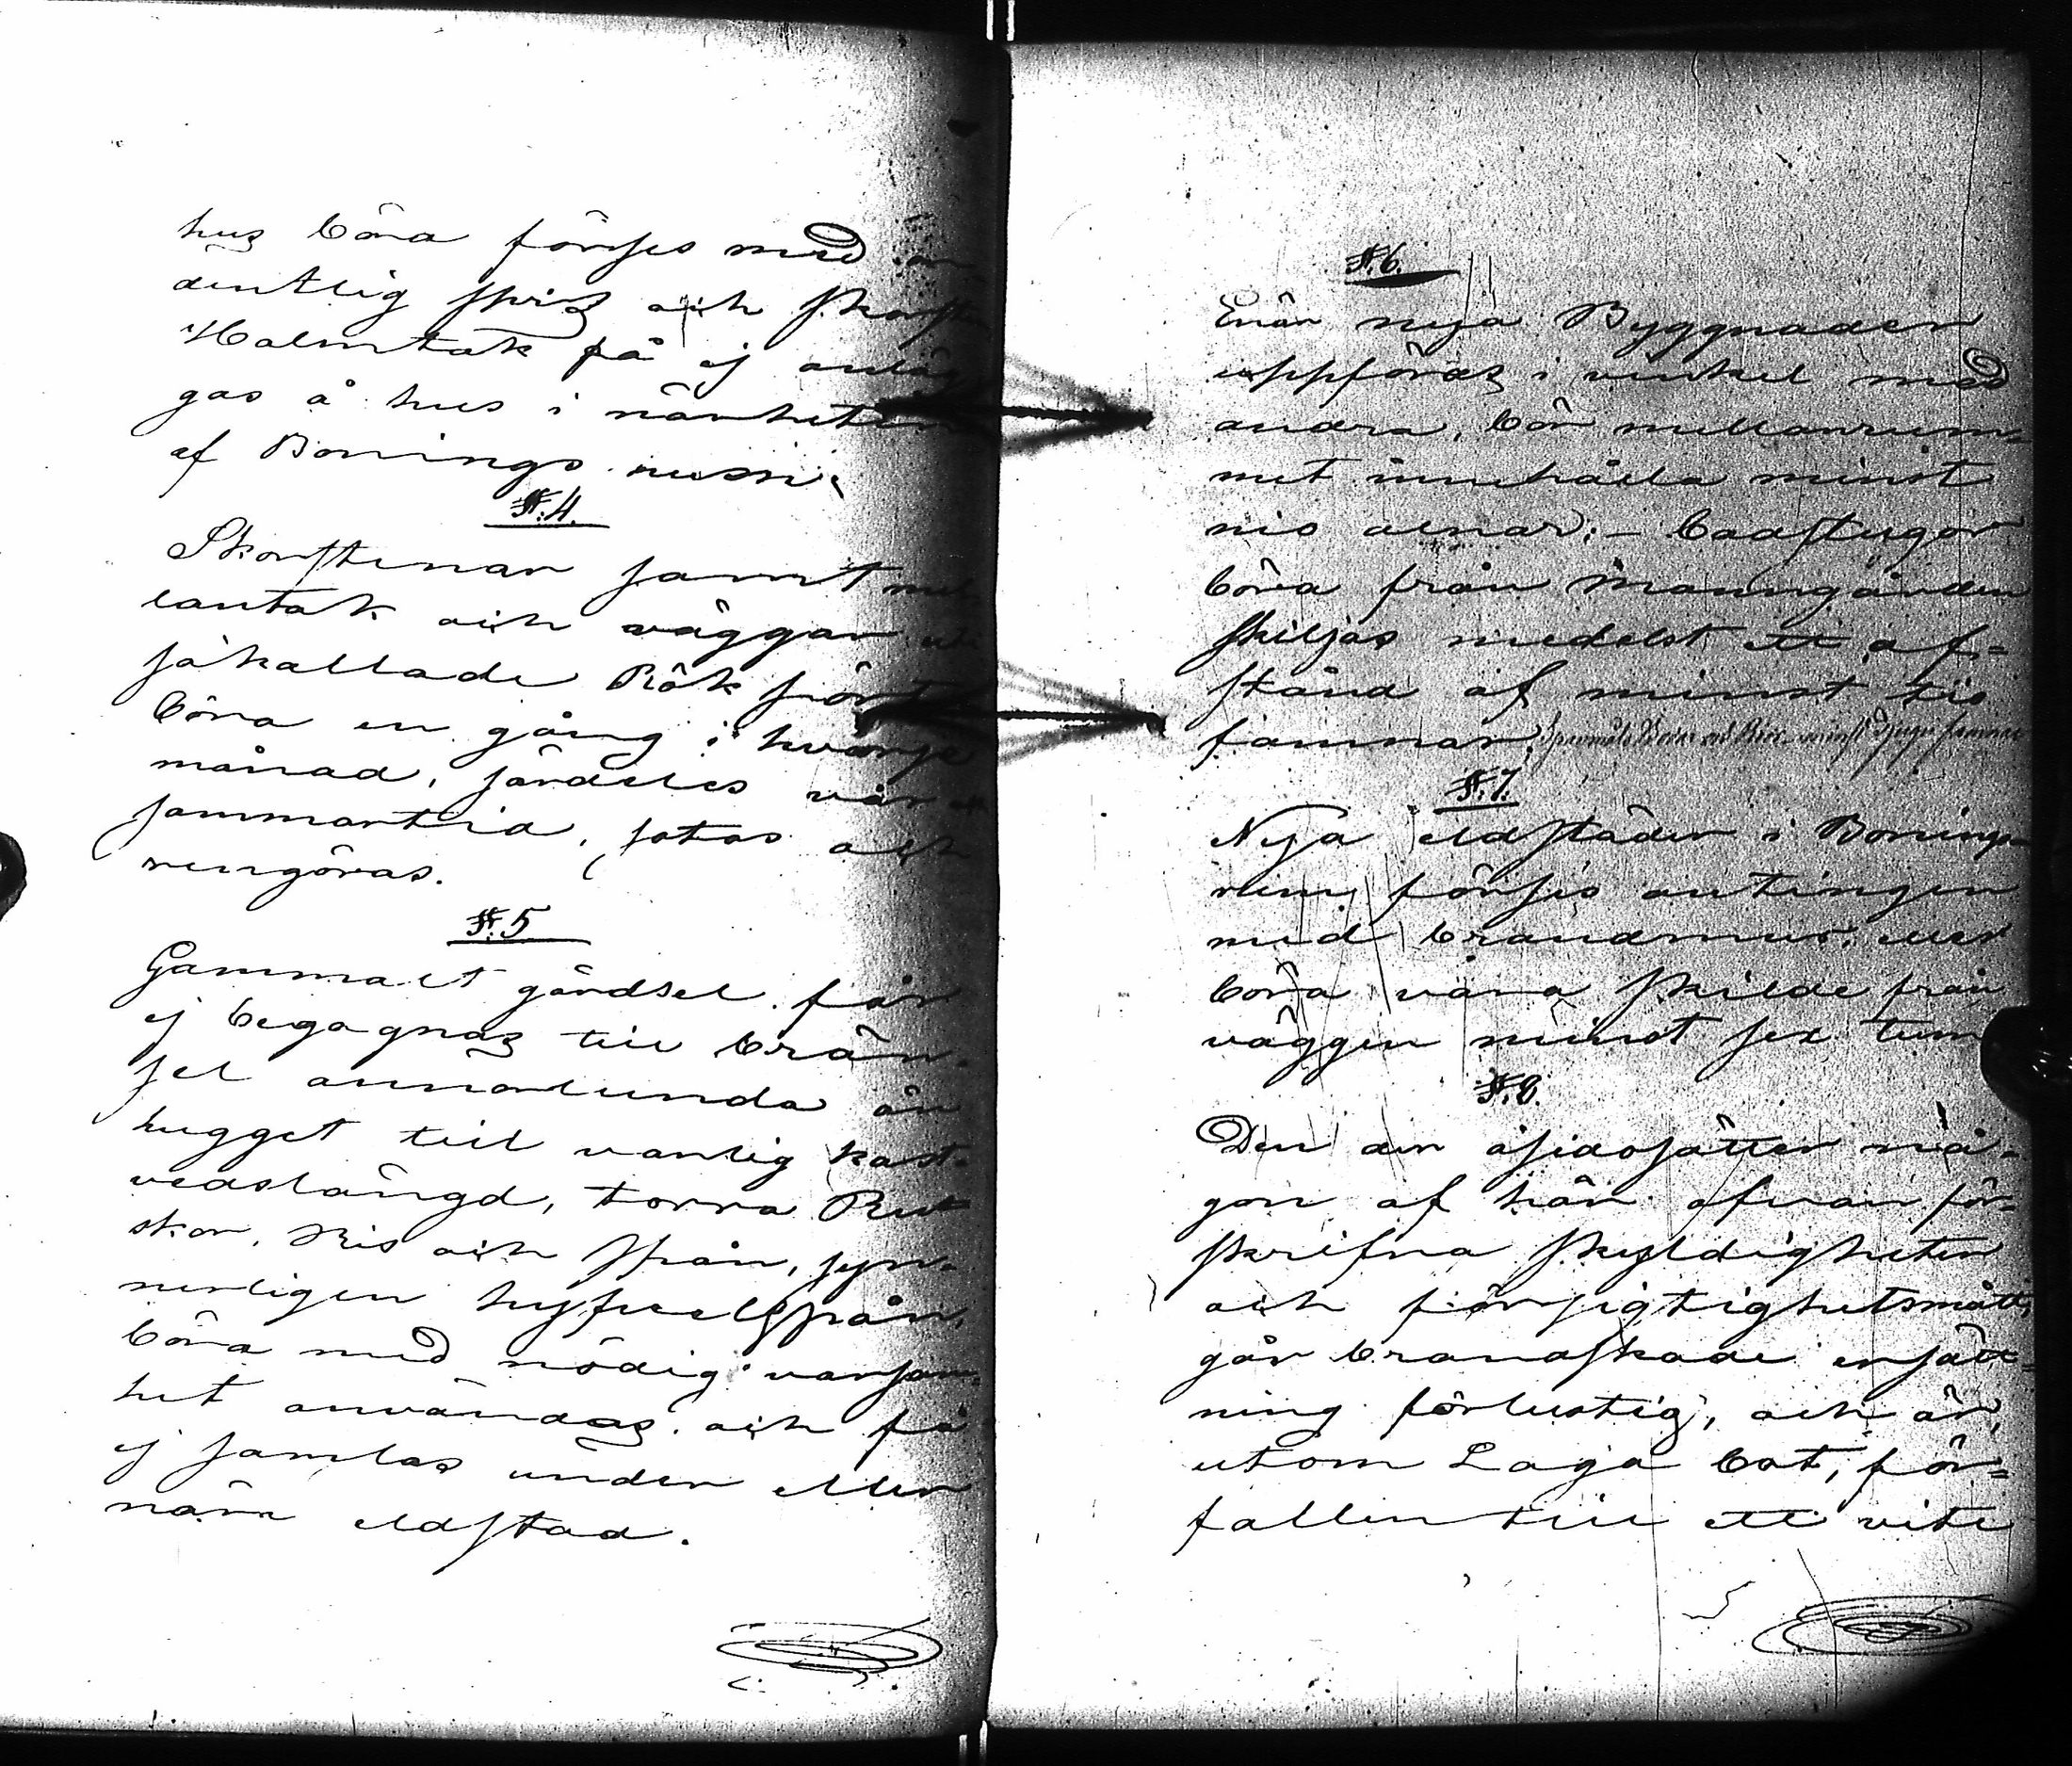 hus böra förses med or
dentlig spis och skorsten
Halmtak få ej anläg
gas å hus i närheten
af Bonings rum.
§. 4.
Skorstenar samt mel
lantak och väggar uti
såkallade Rök pört
böra en gång i hvarje
månad, särdeles vår och
sommartid, sotas och
rengöras.
§. 5
Gammalt gärdsel får
ej begagnas till brän-
sel annorlunda än
hugget till vanlig kast-
vedslängd, torra Rus
kor, Ris och spån, syn-
nerligen hyfvelspån,
böra med nödig varsam-
het användas och få
ej samlas under eller
nära eldstad.
§. 6.
Enär nya Byggnader
uppföras i vinkel med
andra, bör mellanrum-
met innehålla minst
nio alnar; – badstugor
böra från Manngården
skiljas medelst ett af-
stånd af minst tio
famnar, minst tjugu famnar
§. 7.
Nya eldstäder i Bonings-
rum förses antingen
med brandmur, eller
böra vara skilde från
väggen minst sex tum
§. 8.
Den der åsidosätter nå-
gon af här ofvan för-
skrifna skyldigheter
och försigtighetsmått,
går brandskade ersätt-
ning förlustig, och är,
utom Laga bot, för-
fallen till ett vite